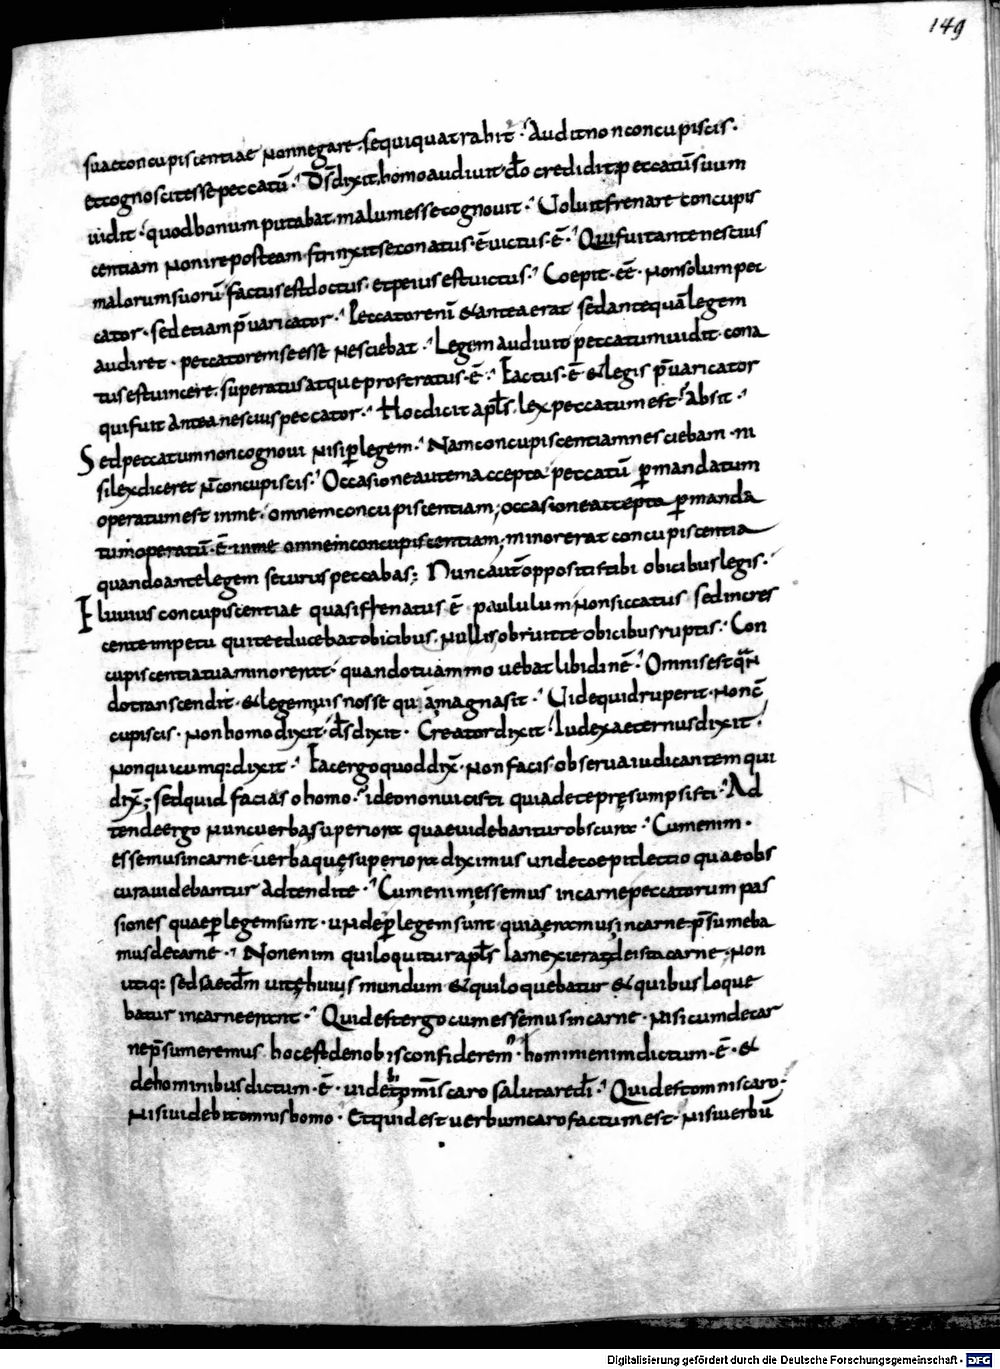 149
suae concupiscentiae non negare. sequi qua trahit. Audit non concupiscis.
et cognoscit esse peccatū. Ds̄ dixit, homo audiuit. dō credidit. peccatū suum
uidit. quod bonum putabat malum esse cognouit. Uoluit frenare concupis
centiam non ire post eam. strinxit se conatus. ē uictus. ē. Qui fuit ante nescius
malorum suorū factus est doctus. et peius est uictus. Coepit. eē. non solum pec
cator. sed etiam p̄uaricator. Peccator enī & antea erat sed antequā legem
audiret. peccatorem se esse nesciebat. Legem audiuit peccatum uidit. cona
tus est uincere. superatus atque prostratus. ē. Factus. ē & legis p̄uaricator
qui fuit antea nescius peccator. Hoc dicit apls̄. lex peccatum est. absit.
Sed peccatum non cognoui nisi p̱ legem. Nam concupiscentiam nesciebam. ni
si lex diceret n̄ concupiscis. Occasione autem accepta peccatū p̱ mandatum
operatum est in me. omnem concupiscentiam; occasione accepta p̱ manda
tum operatū. ē in me omnem concupiscentiam; minor erat concupiscentia
quando ante legem securus peccabas; Nunc aut̄ oppositis tibi obicibus legis.
Fluuius concupiscentiae quasi frenatus ē paululum non siccatus sed incres
cente impetu qui te educebat obicibus. nullis obruit te obicibus ruptis. Con
cupiscentia tua minor erat. quando tuam mouebat libidinē. Omnis est qn̄
do transcendit. & legem uis nosse quā magna sit. Uide quid ruperit. non c̄
cupiscis. non homo dixit. ds̄ dixit. Creator dixit. Iudex aeternus dixit.
non quicumq: dixit. Fac ergo quod dix̄. non facis. obserua iudicantem qui
dix̄; sed quid facias o homo. ideo non uicisti quia de te pręsumpsisti. Ad
tende ergo nunc uerba superiora quae uidebantur obscura. Cum enim.
essemus in carne. uerbaquę superiora diximus unde coepit lectio quae obs
cura uidebantur adtendite. Cum enim essemus in carne peccatorum pas
siones quae p̱ legem sunt. unde p̱ legem sunt quia eramus in carne. p̄sumeba
mus de carne. Non enim qui loquitur apls̄ iam exierat de ista carne. non
utiq: sed saecłm uitę huius mundum & qui loquebatur & quibus loque
batur in carne erant. Quid est ergo cum essemus in carne. nisi cum de car
ne p̄sumeremus. hoc est de nobis confiderem'. homini enim dictum. ē. &
de hominibus dictum. ē. uidebit om̄is caro salutare dī. Quid est omnis caro.
nisi uidebit omnis homo. Et quid est uerbum caro factum est. nisi uerbū
Digitalisierung gefördert durch die Deutsche Forschungsgemeinschaft - DFG